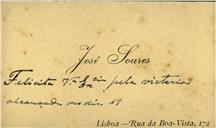 José Soares
Felicita V.ª Ex.cia pela victoria
alcançada no dia 19
Lisboa—Rua da Boa-Vista, 172